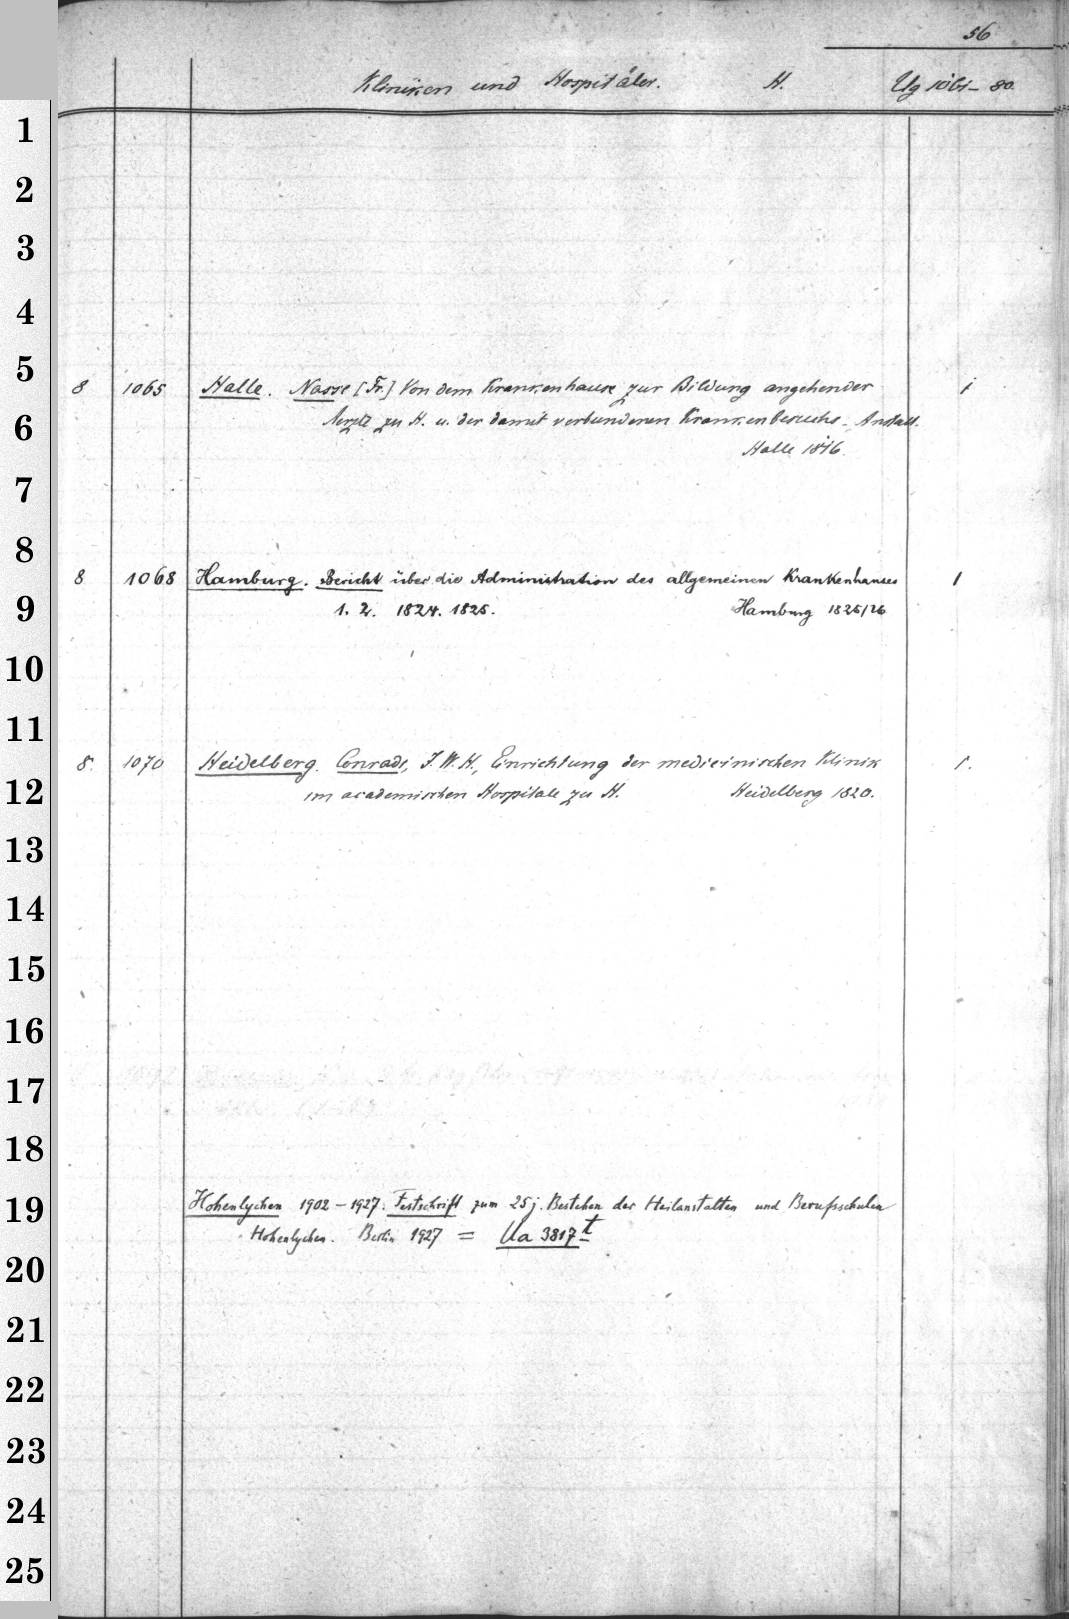 56
Kliniken und Hospitäler. H. Ug 1061-80
1
2
3
4
5
8 1065 Halle. Nasse [Fr.] Von dem Krankenhause zur Bildung angehender 1
6
Aerzte zu H. u. der damit verbundenen Krankenbesuchs-Anstalt.
Halle 1816.
7
8
8 1068 Hamburg. Bericht über die Administration des allgemeinen Krankenhauses 1
9
1. 2. 1824. 1825. Hamburg 1825/26
10
11
8. 1070 Heidelberg. Conradi, J. W. H., Einrichtung der medicinischen Klinik 1.
12
im academischen Hospitale zu H. Heidelberg 1820.
13
14
15
16
17
18
19
Hohenlychen 1902-1927. Festschrift zum 25 j. Bestehen der Heilanstalten und Berufsschulen
Hohenlychen. Berlin 1927 = Ua 3817t
20
21
22
23
24
25